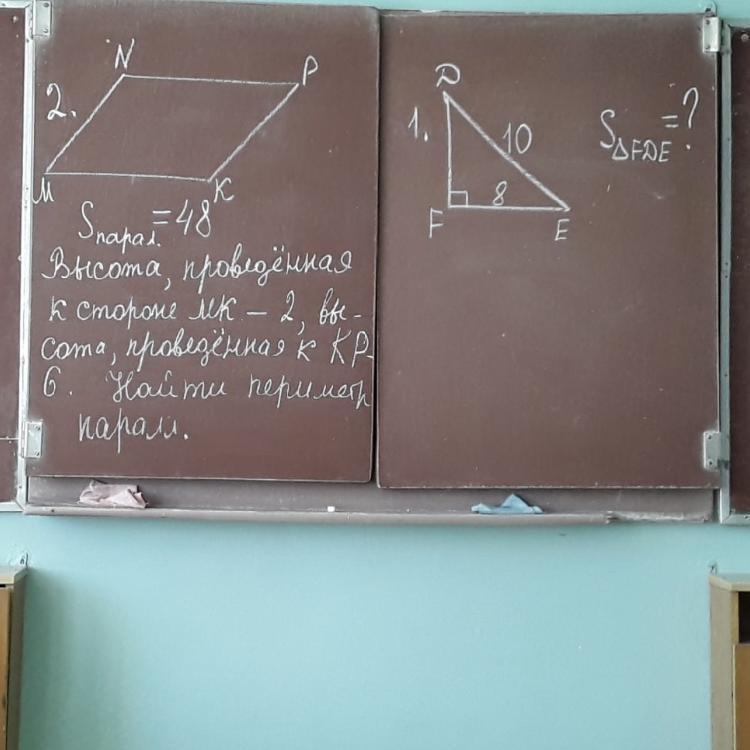 2.
N
P
M
K
Sпарал. = 48
Высота, проведённая
к стороне МК – 2, вы-
сота, проведённая к КР-
6. Найти периметр
паралл.
1.
D
10
8
F
E
S△FDE = ?